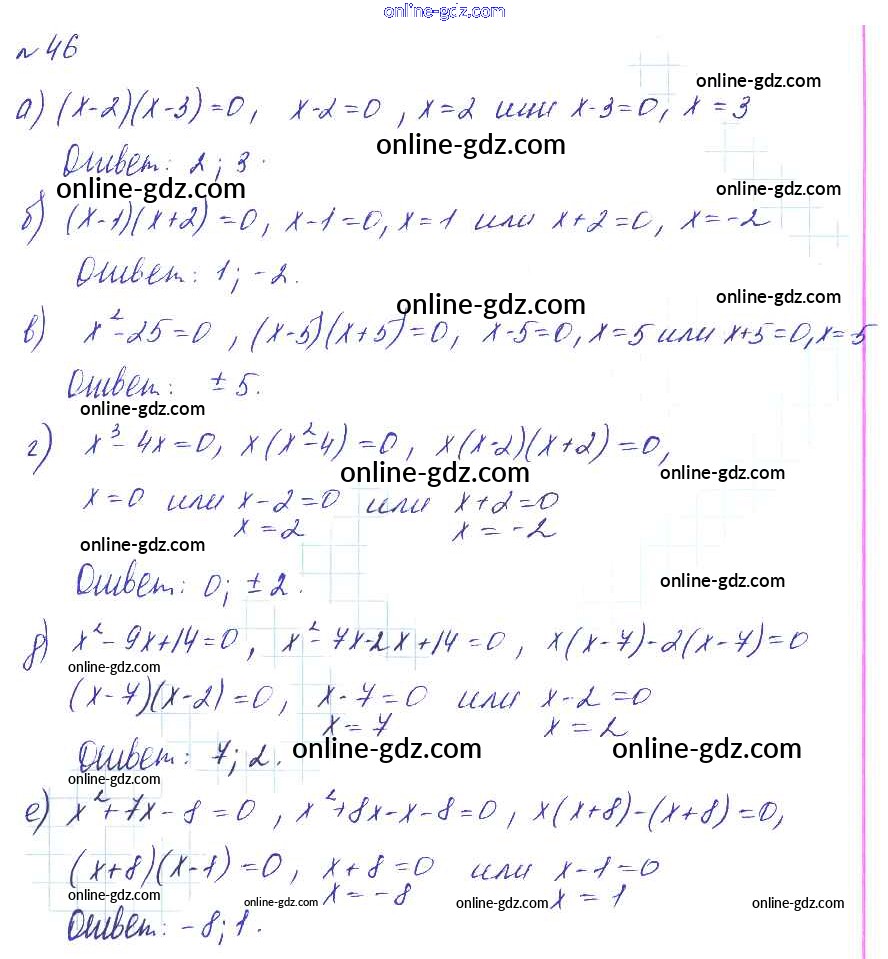 online-gdz.com
№46
online-gdz.com
а) (x-2)(x-3)=0, x-2=0, x=2 или x-3=0, x=3
online-gdz.com
Ответ: 2; 3.
online-gdz.com online-gdz.com
б) (x-1)(x+2)=0, x-1=0, x=1 или x+2=0, x=-2
Ответ: 1; -2.
online-gdz.com online-gdz.com
в) x²-25=0, (x-5)(x+5)=0, x-5=0, x=5 или x+5=0, x=-5
Ответ: ±5.
online-gdz.com
г) x³-4x=0, x(x²-4)=0, x(x-2)(x+2)=0,
online-gdz.com online-gdz.com
x=0 или x-2=0 или x+2=0
x=2 x=-2
online-gdz.com
Ответ: 0; ±2.
online-gdz.com
д) x²-9x+14=0, x²-7x-2x+14=0, x(x-7)-2(x-7)=0
online-gdz.com
(x-7)(x-2)=0, x-7=0 или x-2=0
x=7 x=2
Ответ: 7; 2.
online-gdz.com online-gdz.com
online-gdz.com
е) x²+7x-8=0, x²+8x-x-8=0, x(x+8)-(x+8)=0,
(x+8)(x-1)=0, x+8=0 или x-1=0
x=-8 x=1
online-gdz.com online-gdz.com online-gdz.com online-gdz.com
Ответ: -8; 1.